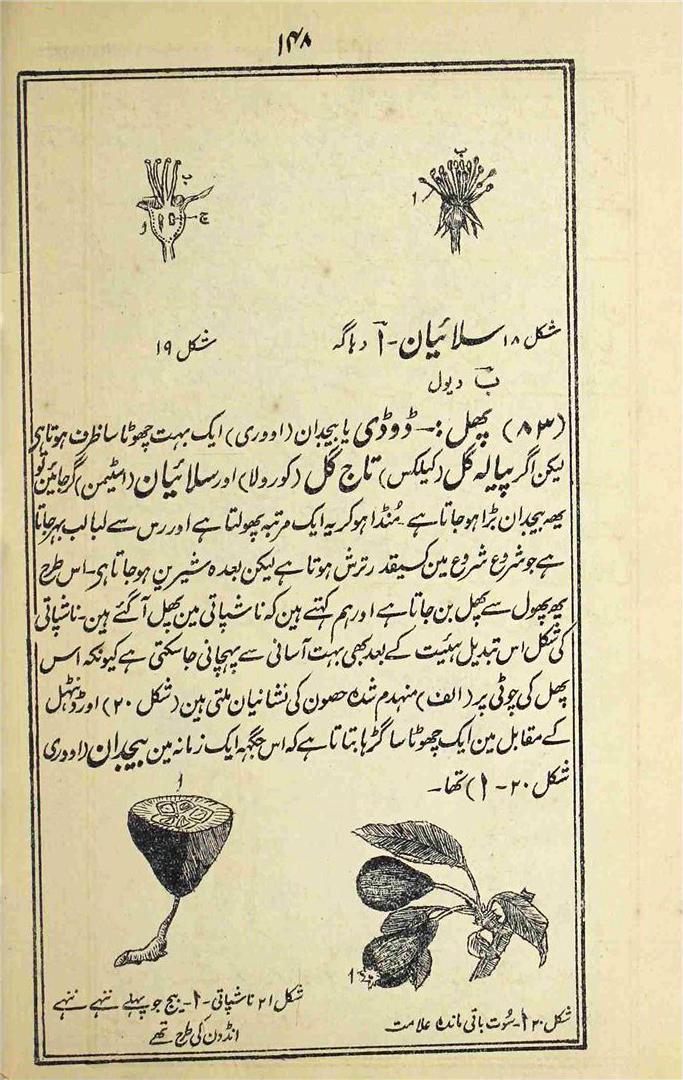 ۱۴۸
ب
ا
ب
ج
و
شکل ۱۸ سلائیان - آ دہاگہ
ب دیول
شکل ۱۹
(۸۳) پھل :- ڈوڈی یا بیجدان (اووری) ایک بہت چھوٹا سا ظرف ہوتا ہی
لیکن اگر پیالہ گل (کیلکس) تاج گل (کورولا) اور سلائیان (اسٹیمن) گر جائین تو
یھہ بیجدان بڑا ہو جاتا ہے۔ مُنڈا ہو کر یہ ایک مرتبہ پھولتا ہے اور رس سے لبالب بھر جاتا
ہے جو شروع شروع مین کسیقدر ترش ہوتا ہے لیکن بعدہ شیرین ہو جاتا ہی۔ اس طرح
پھر پھول سے پھل بن جاتا ہے اور ہم کہتے ہین کہ ناشپاتی مین پھل آ گئے ہین۔ ناشپاتی
کی شکل اس تبدیل ہیئیت کے بعد بھی بہت آسانی سے پہچانی جا سکتی ہے کیونکہ اس
پھل کی چوٹی پر (الف) منہدم شدہ حصون کی نشانیان ملتی ہین (شکل ۲۰) اور ڈنٹھل
کے مقابل مین ایک چھوٹا سا گڑہا بتاتا ہے کہ اس جگہہ ایک زمانہ مین بیجدان (اووری
شکل ۲۰ - ا) تھا۔
ا
ا
شکل ۲۰ ا - سُوت باقی ماندہ علامت
شکل ۲۱ ناشپاتی - ا - بیج جو پہلے ننہے ننہے
انڈون کی طرح تھے